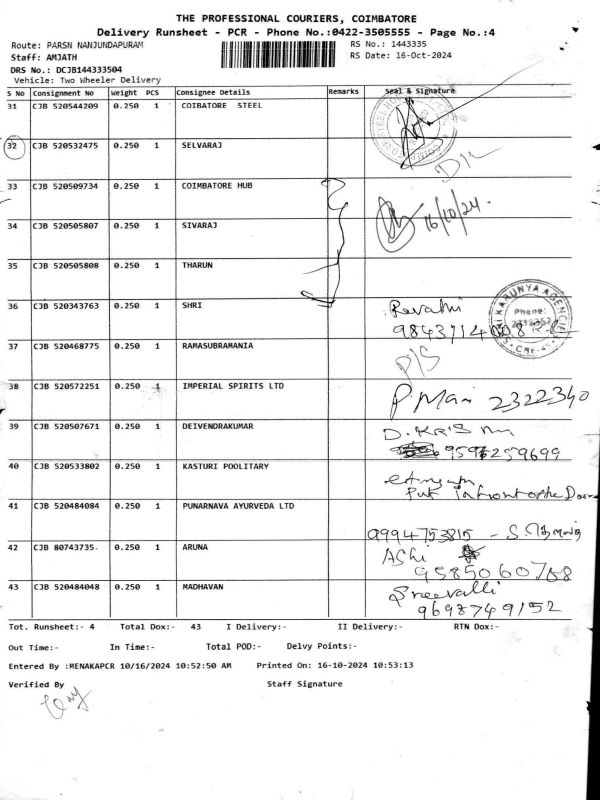 THE PROFESSIONAL COURIERS, COIMBATORE
Delivery Runsheet - PCR - Phone No.:0422-3505555 - Page No.:4
Route: PARSN NANJUNDAPURAM RS No.: 1443335
Staff: AMJATH RS Date: 16-Oct-2024
DRS No.: DCJB144333504
Vehicle: Two Wheeler Delivery
S No Consignment No Weight PCS Consignee Details Remarks Seal & Signature
31 CJB 520544209 0.250 1 COIBATORE STEEL
32 CJB 520532475 0.250 1 SELVARAJ
33 CJB 520509734 0.250 1 COIMBATORE HUB
16/10/24.
34 CJB 520505807 0.250 1 SIVARAJ
35 CJB 520505808 0.250 1 THARUN
36 CJB 520343763 0.250 1 SHRI Revathi
KARUNYA AGENCIES Phone:
37 CJB 520468775 0.250 1 RAMASUBRAMANIA
38 CJB 520572251 0.250 1 IMPERIAL SPIRITS LTD P. Mani 2322340
39 CJB 520507671 0.250 1 DEIVENDRAKUMAR
40 CJB 520533802 0.250 1 KASTURI POOLITARY
41 CJB 520484084 0.250 1 PUNARNAVA AYURVEDA LTD 9994753815 - S.
42 CJB 80743735 0.250 1 ARUNA Ashi
9585060768
43 CJB 520484048 0.250 1 MADHAVAN Sreevalli
9698749152
Tot. Runsheet:- 4 Total Dox:- 43 I Delivery:- II Delivery:- RTN Dox:-
Out Time:- In Time:- Total POD:- Delvy Points:-
Entered By :MENAKAPCR 10/16/2024 10:52:50 AM Printed On: 16-10-2024 10:53:13
Verified By Staff Signature